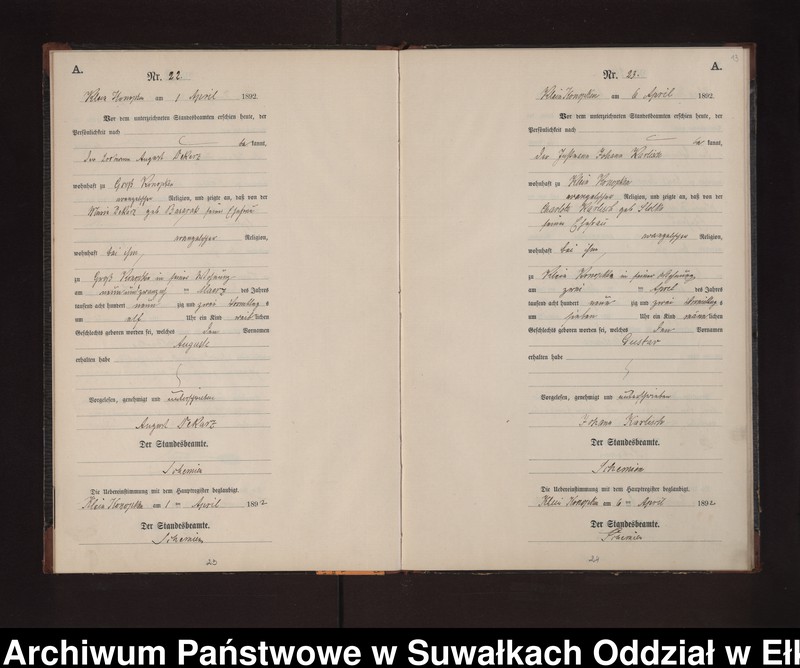 A.
Nr. 22.
Klein Konopken am 1 April 1892
Vor dem unterzeichneten Standesbeamten erschien heute, der
Persönlichkeit nach
be kannt,
der August Dekarz
wohnhaft zu Groß Konopken
evangelischer Religion, und zeigte an, daß von der
Marie Dekarz geb seiner Ehefrau
evangelischer Religion,
wohnhaft bei ihm,
zu Groß Konopken in seiner Wohnung
am neunundzwanzigsten März des Jahres
tausend acht hundert neun zig und zwei Vormittags
um elf Uhr ein Kind weiblichen
Geschlechts geboren worden sei, welches den Vornamen
Auguste
erhalten habe
Vorgelesen, genehmigt und unterschrieben
August Dekarz
Der Standesbeamte.
Schemien
Die Uebereinstimmung mit dem Hauptregister beglaubigt.
Klein Konopken am 1 ten April 1892
Der Standesbeamte.
Schemien
23
A.
Nr. 23.
Klein Konopken am 6 April 1892
Vor dem unterzeichneten Standesbeamten erschien heute, der
Persönlichkeit nach
be kannt,
der Instmann Johann Karlisch
wohnhaft zu Klein Konopken
evangelischer Religion, und zeigte an, daß von der
Charlotte Karlisch geb
seiner Ehefrau
evangelischer Religion,
wohnhaft bei ihm,
zu Klein Konopken in seiner Wohnung
am zwei ten April des Jahres
tausend acht hundert neun zig und zwei Vormittags
um sieben Uhr ein Kind männlichen
Geschlechts geboren worden sei, welches den Vornamen
Gustav
erhalten habe
Vorgelesen, genehmigt und unterschrieben
Johann Karlisch
Der Standesbeamte.
Schemien
Die Uebereinstimmung mit dem Hauptregister beglaubigt.
Klein Konopken am 6 ten April 1892
Der Standesbeamte.
Schemien
24
Archiwum Państwowe w Suwałkach Oddział w Eł